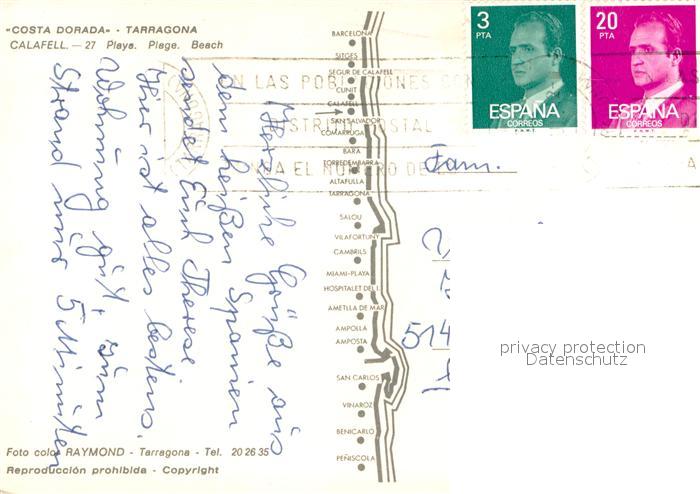 «COSTA DORADA» - TARRAGONA
CALAFELL. — 27 Playa. Plage. Beach
Herzliche Grüße aus
den heißen Spanien
sendet Euch Therese
Hier ist alles bestens.
Wohnung gut, zum
Strand nur 5 Minuten
Foto color RAYMOND - Tarragona - Tel. 20 26 35
Reproducción prohibida - Copyright
BARCELONA
SITGES
SEGUR DE CALAFELL
CUNIT
CALAFELL
SAN SALVADOR
COMARRUGA
BARA
TORREDEMBARRA
ALTAFULLA
TARRAGONA
SALOU
VILAFORTUNY
CAMBRILS
MIAMI-PLAYA
HOSPITALET DEL I.
AMETLLA DE MAR
AMPOLLA
AMPOSTA
SAN CARLOS
VINAROZ
BENICARLO
PEÑISCOLA
3
PTA
ESPAÑA
CORREOS
F.N.M.T.
20
PTA
ESPAÑA
CORREOS
F.N.M.T.
EN LAS POBLACIONES CON
DISTRITO POSTAL
EL NUMERO DE
Fam.
514
privacy protection
Datenschutz